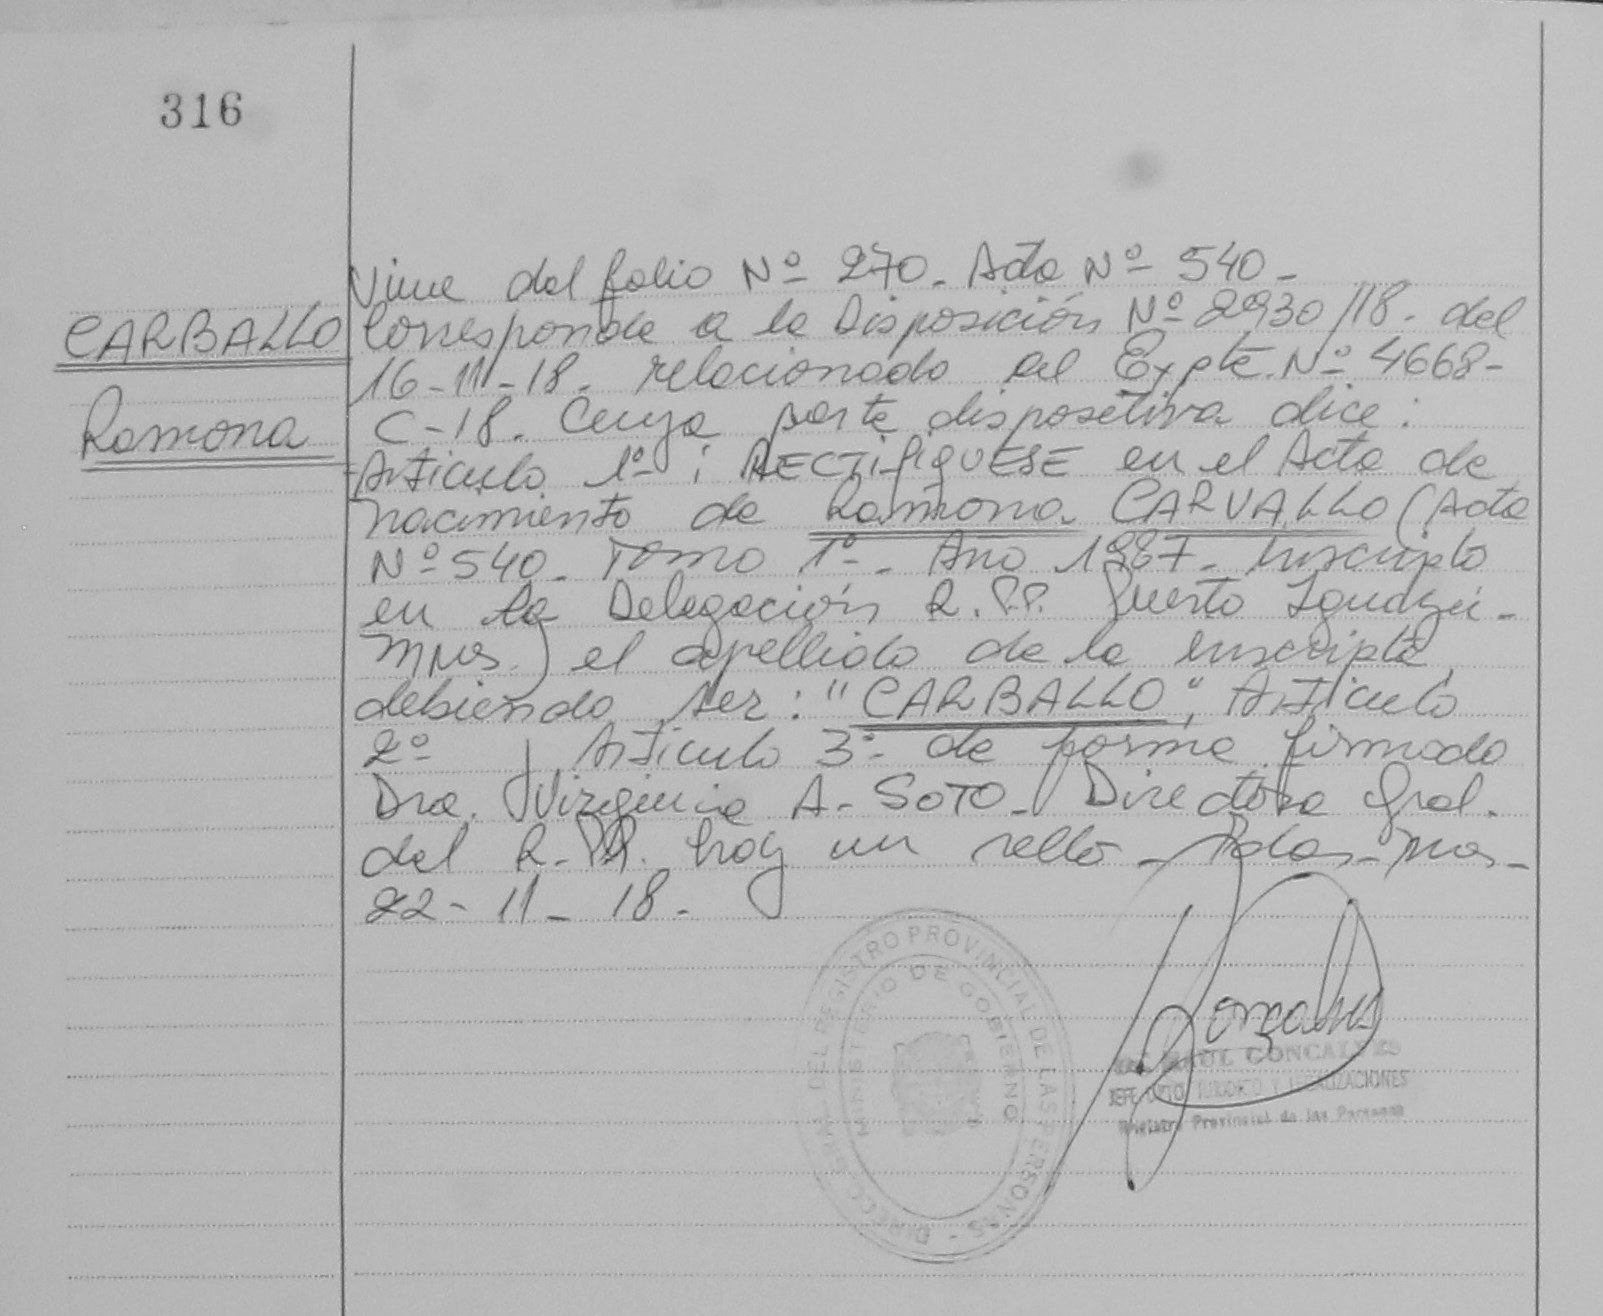 316
Viene del folio Nº 270. Acta Nº 540-
CARBALLO
Ramona
Corresponde a la Disposición Nº 2930/18. del
16-11-18. relacionado al Expte. Nº 4668-
C-18. Cuya parte dispositiva dice:
Artículo 1º: RECTIFIQUESE en el Acta de
nacimiento de Ramona CARVALLO (Acta
Nº 540. Tomo 1º-. Año 1987- Inscripto
en la Delegación R.P.P. Puerto Iguazú-
Mnes.) el apellido de la inscripta,
debiendo ser: "CARBALLO"; Artículo
2º y Artículo 3º de forma firmado
Dra. Virginia A. SOTO- Directora Gral.
del R.P.P. hay un sello- Pdas- Mnes-
22-11-18.
DIRECC. GRAL. DEL REGISTRO PROVINCIAL DE LAS PERSONAS -
MINISTERIO DE GOBIERNO
RAUL GONCALVES
JEFE DPTO. JURIDICO Y LEGALIZACIONES
Registro Provincial de las Personas